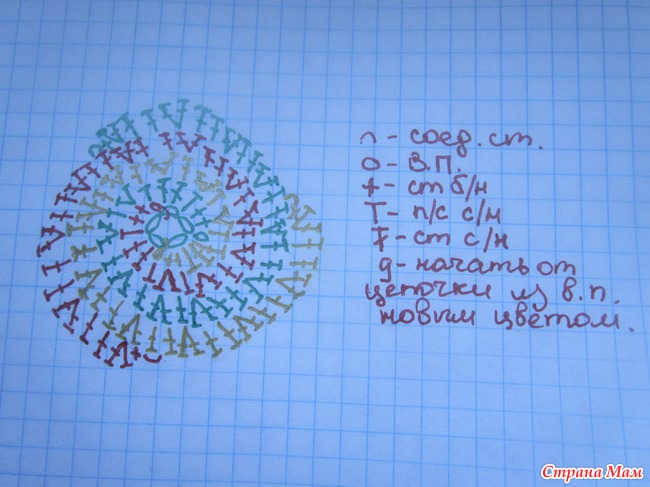 ∩ - соед. ст.
o - в.п.
+ - ст б/н
T - п/с с/н
Ŧ - ст с/н
g - начать от
цепочки из в.п.
новым цветом.
Страна Мам